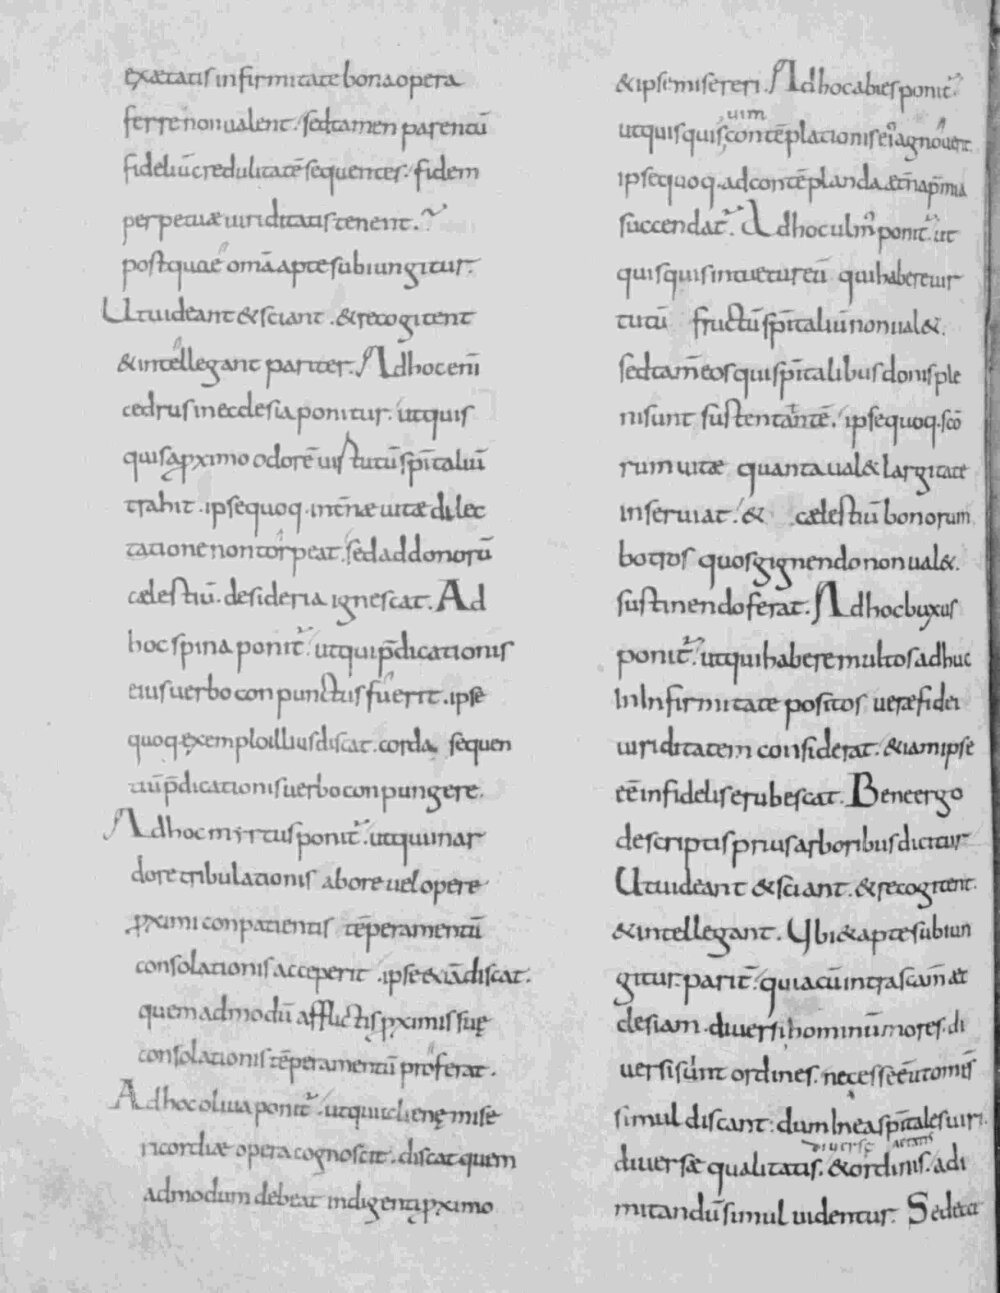 exætatis infirmitate bona opera
ferre non ualent. sed tamen parentū
fideliū credulitatē sequentes. fidem
perpetuæ uiriditatis tenent.
post quae omā apte subiungitur.
Ut uideant & sciant. & recogitent
& intellegant pariter. Ad hoc enī
cedrus in ecclesia ponitur. ut quis
quis a pximo odorē uirtutū spītaliū
trahit. ipse quoq. in etnæ uitæ dilec
tatione non torpeat. sed ad donorū
cælestiū. desideria ignescat. Ad
hoc spina ponit. ut qui pdicationis
eius uerbo conpunctus fuerit. ipse
quoq. exemplo illius discat. corda sequen
tiū pdicationis uerbo conpungere.
Ad hoc mirtus ponit. ut qui in ar
dore tribulationis abore uel opere
pximi conpatientis tēperamentū
consolationis acceperit. ipse & iā discat.
quem admodū afflictis pximis suę
consolationis tēperamentū proferat.
Ad hoc oliua ponit. ut qui clienę mise
ricordiæ opera cognoscit. discat quem
admodum debeat indigenti pximo
& ipse misereri. Ad hoc abies ponit.
uim
ut quisquis contēplationis ei agnouerit
ipse quoq. ad contēplanda ætna pmia
succendat. Ad hoc ulm ponit. ut
quisquis intuetur eū qui habere uir
tutū fructū spītaliū non ual&.
sed tamēn eos qui spītalibus donis ple
ni sunt sustentantē. ipse quoq. scō
rum uitæ quanta ual& largitate
inseruiat. & cælestiū bonorum
botros quos gignendo non ual&.
sustinendo ferat. Ad hoc buxus
ponit. ut qui habere multos adhuc
In Infirmitate positos ueræ fidei
uiriditatem considerat. & iam ipse
eē infidelis erubescat. Bene ergo
descriptis prius arboribus dicitur
Ut uideant & sciant. & recogitent.
& intellegant. Ubi & apte subiun
gitur. parit. quia cū intra scam æc
clesiam. diuersi hominū mores. di
uersi sunt ordines. necesse ē ut omīs
simul discant: dum In ea spītales uiri.
diuersę aetatis
diuersæ qualitatis. & ordinis. ad i
mitandū simul uidentur. Sed ecce